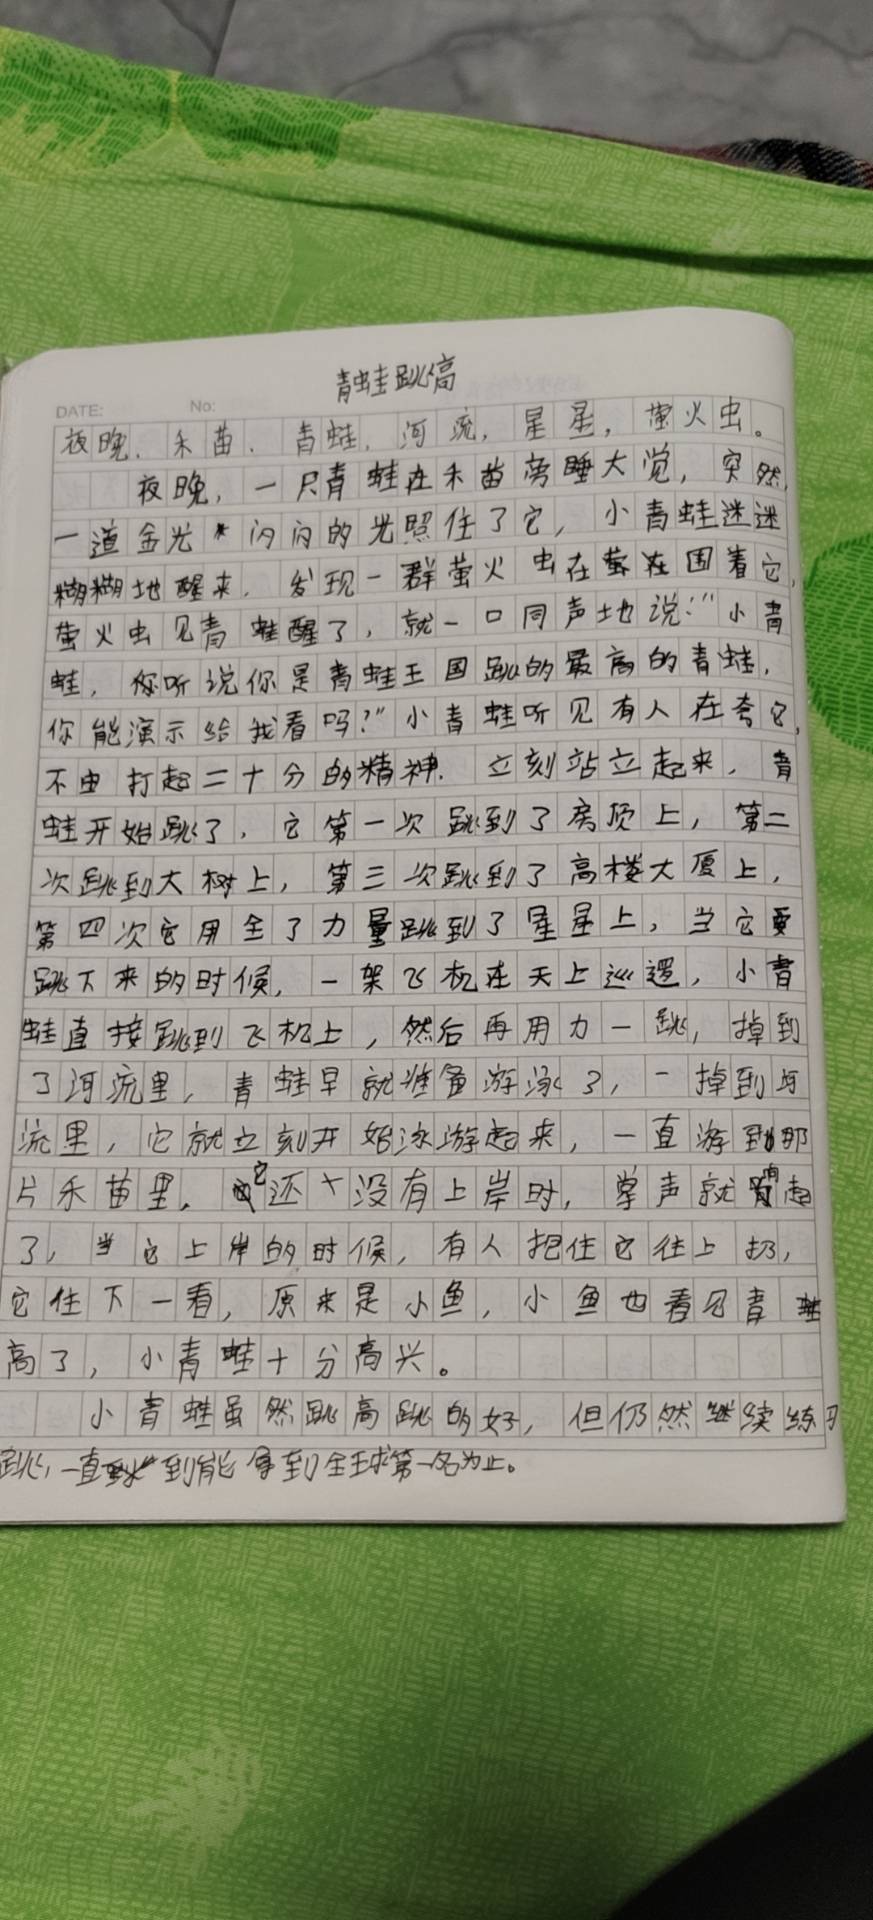 青蛙跳高
DATE: No:
夜晚、禾苗、青蛙,河流,星星,萤火虫。
夜晚,一只青蛙在禾苗旁睡大觉,突然,
一道金光闪闪的光照住了它,小青蛙迷迷
糊糊地醒来,发现一群萤火虫在萤在围着它,
萤火虫见青蛙醒了,就一口同声地说:"小青
蛙,你听说你是青蛙王国跳的最高的青蛙,
你能演示给我看吗?"小青蛙听见有人在夸它,
不由打起二十分的精神.立刻站立起来,青
蛙开始跳了,它第一次跳到了房顶上,第二
次跳到大树上,第三次跳到了高楼大厦上,
第四次它用全了力量跳到了星星上,当它要
跳下来的时候,一架飞机在天上巡逻,小青
蛙直接跳到飞机上,然后再用力一跳,掉到
了河流里,青蛙早就准备游泳了,一掉到
流里,它就立刻开始泳游起来,一直游到那
片禾苗里,它还没有上岸时,掌声就响起
了,当它上岸的时候,有人把住它往上扔,
它住下一看,原来是小鱼,小鱼也看见青蛙
高了,小青蛙十分高兴。
小青蛙虽然跳高跳的好,但仍然继续练习
跳,一直到能拿到全球第一名为止。